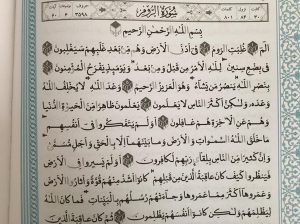 سُورَةُ الرُّومِ
بِسْمِ اللَّهِ الرَّحْمٰنِ الرَّحِيمِ
الم غُلِبَتِ الرُّومُ فِي أَدْنَى الْأَرْضِ وَهُمْ مِنْ بَعْدِ غَلَبِهِمْ سَيَغْلِبُونَ
فِي بِضْعِ سِنِينَ لِلَّهِ الْأَمْرُ مِنْ قَبْلُ وَمِنْ بَعْدُ وَيَوْمَئِذٍ يَفْرَحُ الْمُؤْمِنُونَ
بِنَصْرِ اللَّهِ يَنْصُرُ مَنْ يَشَاءُ وَهُوَ الْعَزِيزُ الرَّحِيمُ وَعْدَ اللَّهِ لَا يُخْلِفُ اللَّهُ
وَعْدَهُ وَلَٰكِنَّ أَكْثَرَ النَّاسِ لَا يَعْلَمُونَ يَعْلَمُونَ ظَاهِرًا مِنَ الْحَيَاةِ الدُّنْيَا
وَهُمْ عَنِ الْآخِرَةِ هُمْ غَافِلُونَ أَوَلَمْ يَتَفَكَّرُوا فِي أَنْفُسِهِمْ
مَا خَلَقَ اللَّهُ السَّمٰوَاتِ وَالْأَرْضَ وَمَا بَيْنَهُمَا إِلَّا بِالْحَقِّ وَأَجَلٍ مُسَمًّى
وَإِنَّ كَثِيرًا مِنَ النَّاسِ بِلِقَاءِ رَبِّهِمْ لَكَافِرُونَ أَوَلَمْ يَسِيرُوا فِي الْأَرْضِ
فَيَنْظُرُوا كَيْفَ كَانَ عَاقِبَةُ الَّذِينَ مِنْ قَبْلِهِمْ كَانُوا أَشَدَّ مِنْهُمْ قُوَّةً وَأَثَارُوا الْأَرْضَ
وَعَمَرُوهَا أَكْثَرَ مِمَّا عَمَرُوهَا وَجَاءَتْهُمْ رُسُلُهُمْ بِالْبَيِّنَاتِ فَمَا كَانَ اللَّهُ
لِيَظْلِمَهُمْ وَلَٰكِنْ كَانُوا أَنْفُسَهُمْ يَظْلِمُونَ ثُمَّ كَانَ عَاقِبَةَ الَّذِينَ